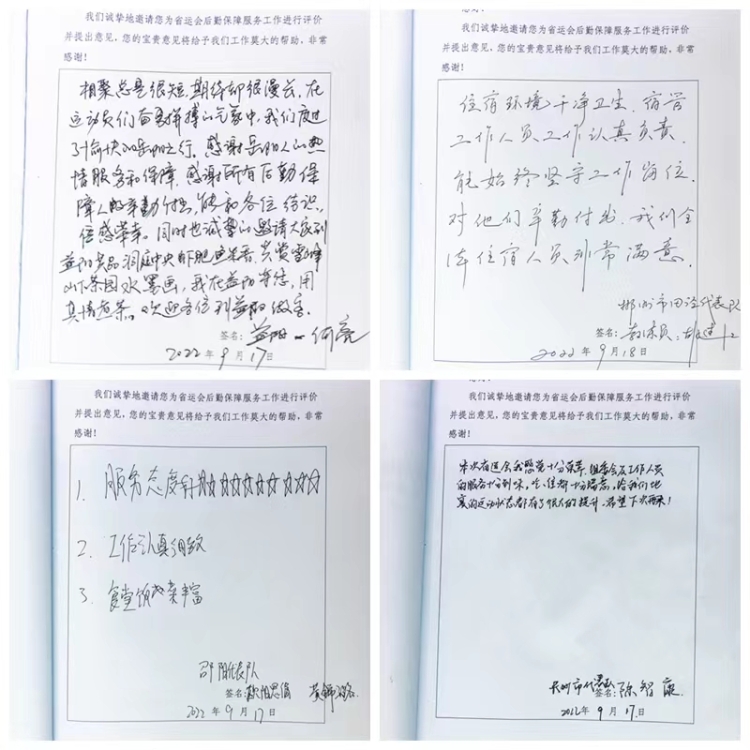 我们诚挚地邀请您为省运会后勤保障服务工作进行评价
并提出意见，您的宝贵意见将给予我们工作莫大的帮助，非常
感谢！
相聚总是很短，期待却很漫长，在
运动员们奋勇拼搏的气氛中，我们度过
了愉快的岳阳之行。感谢岳阳人的热
情服务和保障，感谢所有后勤保
障人的辛勤付出，能和各位结识，
倍感荣幸。同时也诚挚的邀请大家到
益阳共品洞庭中央鲜，共赏雪峰
山下茶园水墨画，我在益阳等您，用
真情煮茶。欢迎各位到益阳做客。
签名：益阳－何亮
2022年9月17日
我们诚挚地邀请您为省运会后勤保障服务工作进行评价
并提出意见，您的宝贵意见将给予我们工作莫大的帮助，非常
感谢！
住宿环境干净卫生，宿管
工作人员工作认真负责，
能始终坚守工作岗位，
对他们辛勤付出，我们全
体住宿人员非常满意。
郴州市田径代表队
签名：教练员：胡建
2022年9月18日
我们诚挚地邀请您为省运会后勤保障服务工作进行评价
并提出意见，您的宝贵意见将给予我们工作莫大的帮助，非常
感谢！
1. 服务态度好☆☆☆☆☆☆☆☆
2. 工作认真细致
3. 食堂饭菜丰富
邵阳代表队
签名：
2022年9月17日
我们诚挚地邀请您为省运会后勤保障服务工作进行评价
并提出意见，您的宝贵意见将给予我们工作莫大的帮助，非常
感谢！
本次省运会我感觉十分荣幸，组委会及工作人员
的服务十分到味，吃、住都十分满意，给我们比
赛的运动状态都有了很大的提升，希望下次再来！
长沙市代表队
签名：陈智
2022年9月17日